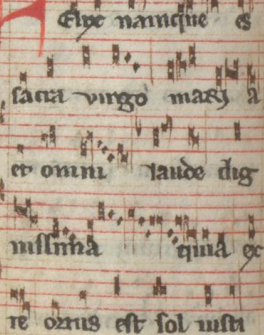 Felix namque es
sacra virgo mari a
et omni laude dig
nissima quia ex
te ortus est sol iusti